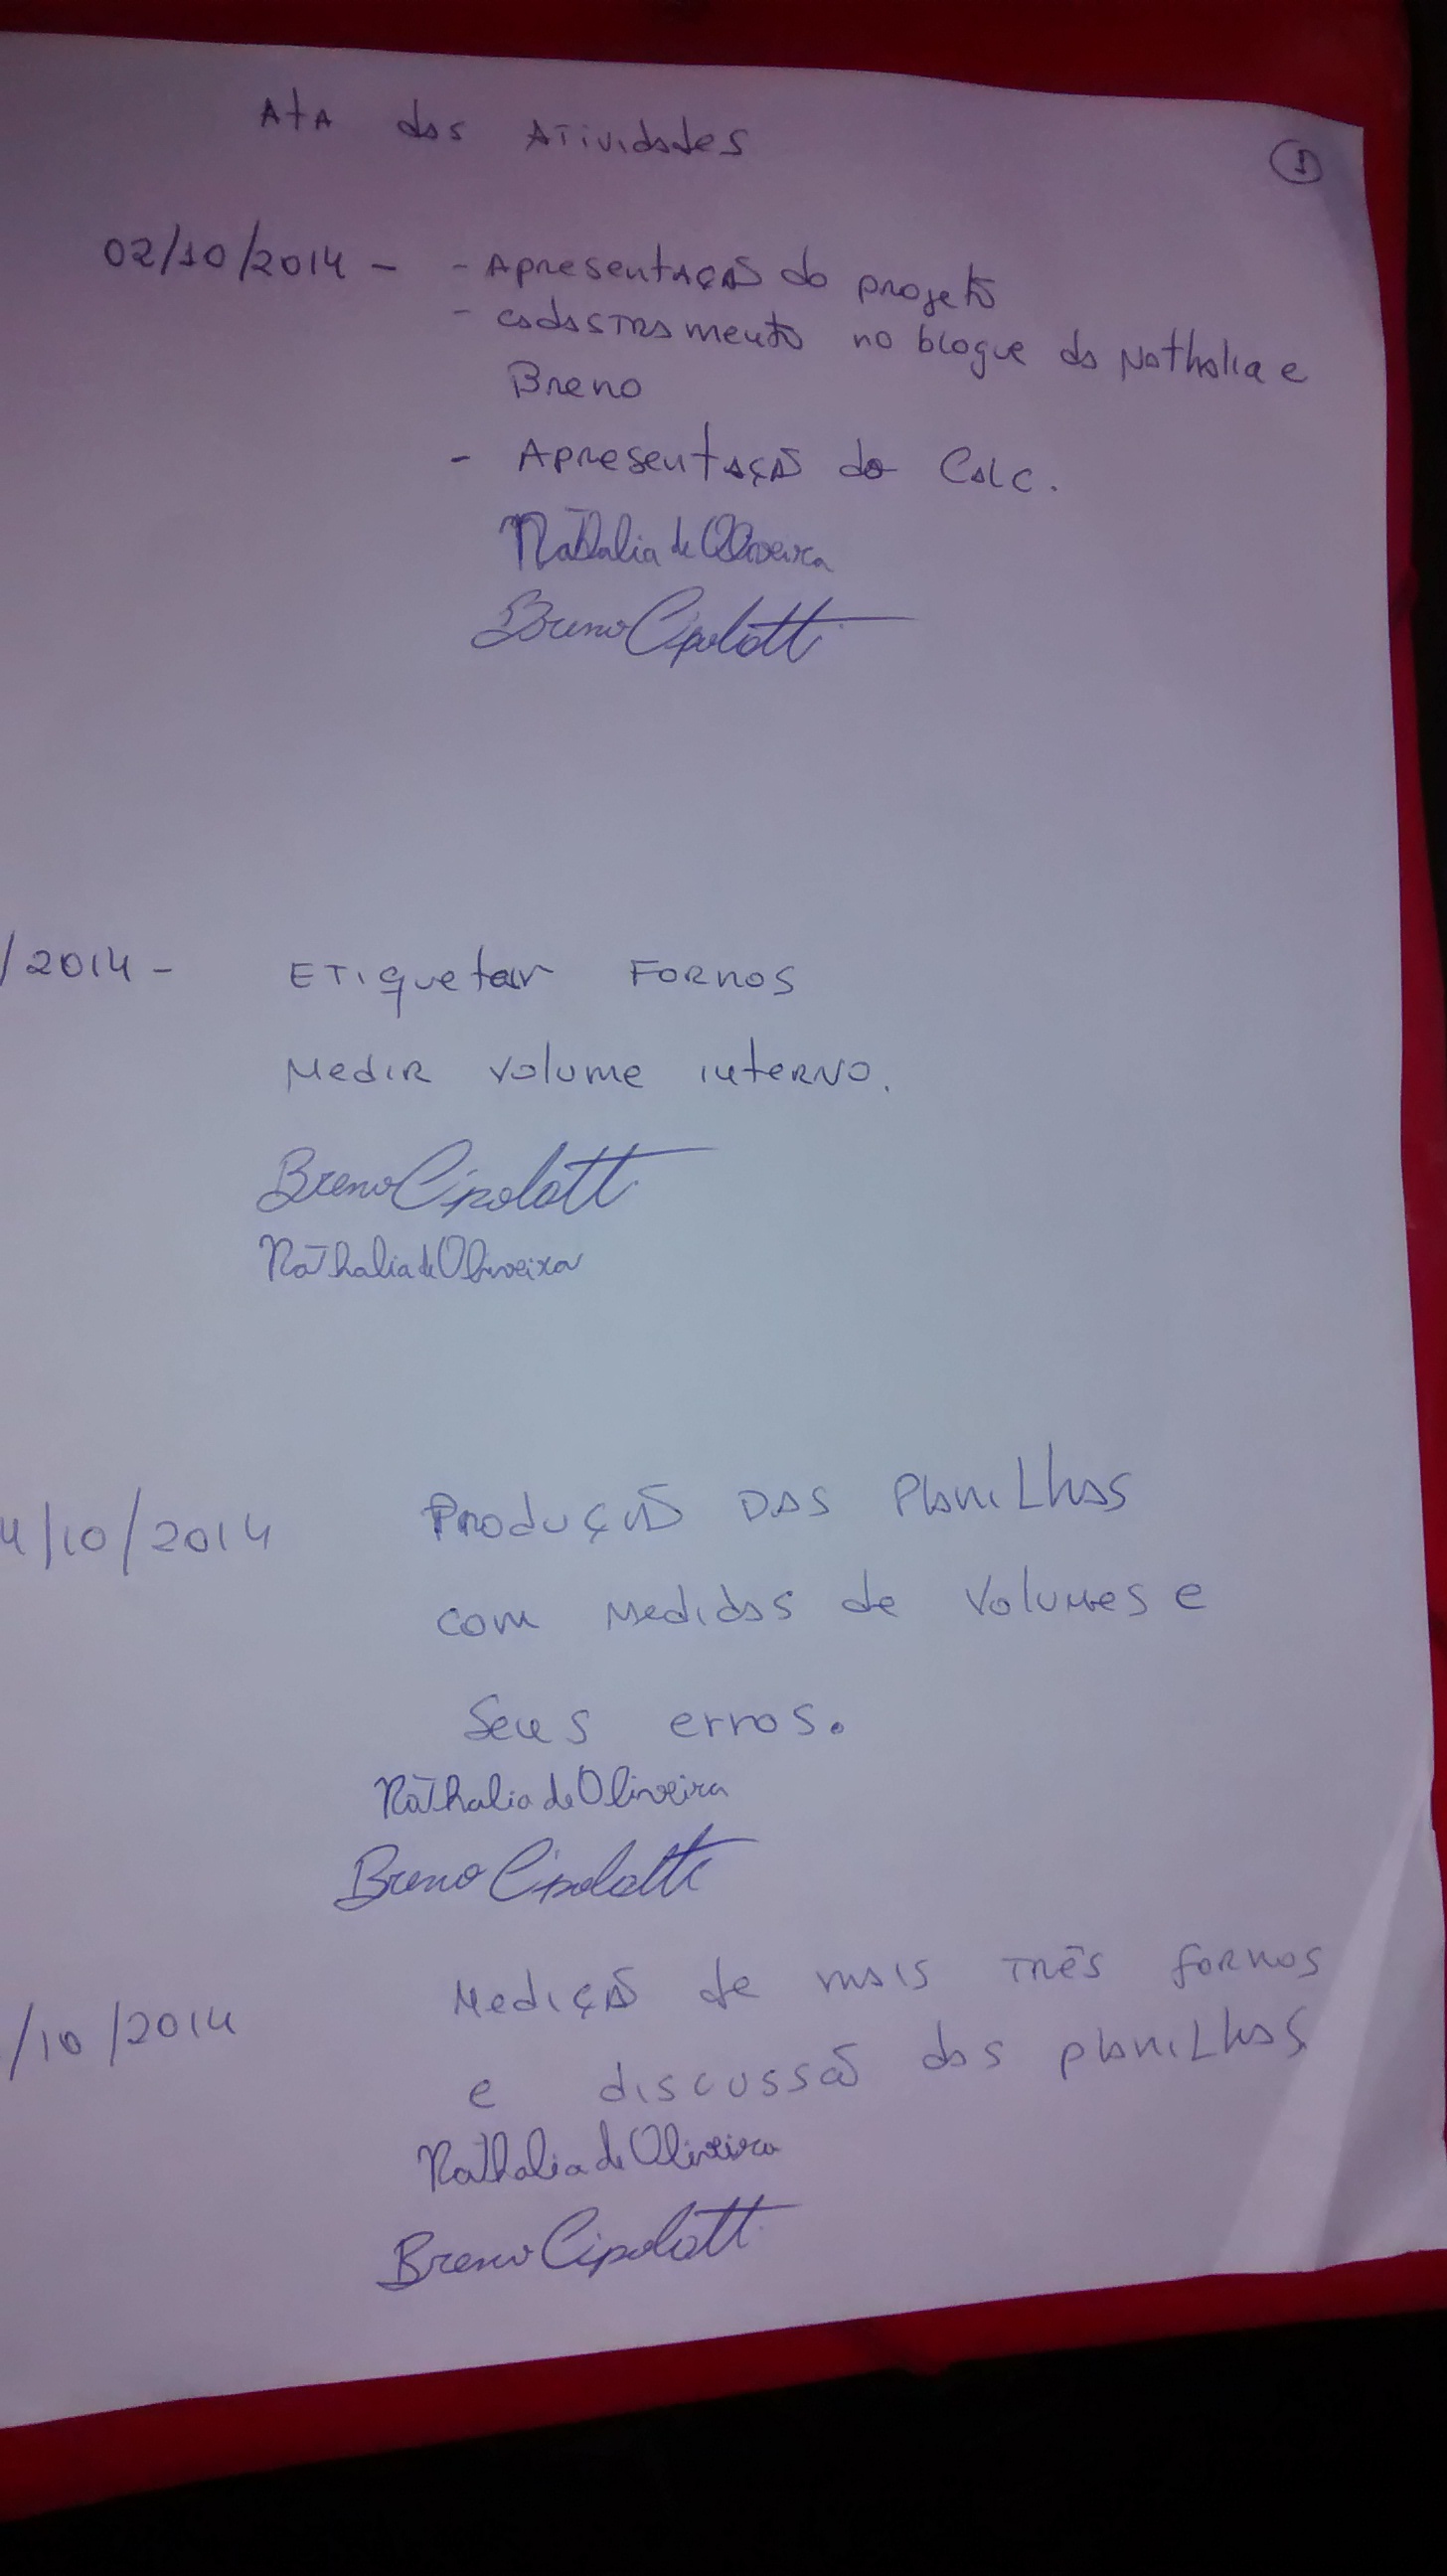 Ata das Atividades
1
02/10/2014 - - Apresentação do projeto
- cadastramento no blogue da Nathalia e
Breno
- Apresentação do Calc.
Nathalia de Oliveira
Breno Cipolatti
/2014 - Etiquetar Fornos
Medir volume interno.
Breno Cipolatti
Nathalia de Oliveira
4/10/2014 Produção das Planilhas
com Medidas de Volumes e
Seus erros.
Nathalia de Oliveira
Breno Cipolatti
/10/2014 Medição de mais três fornos
e discussão das planilhas
Nathalia de Oliveira
Breno Cipolatti